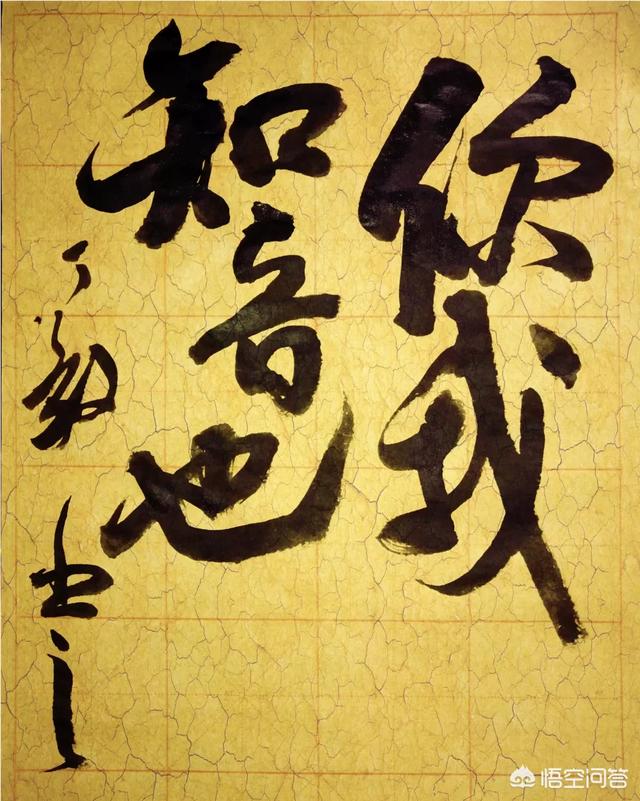 你我
知音也
丁 书之
悟空问答